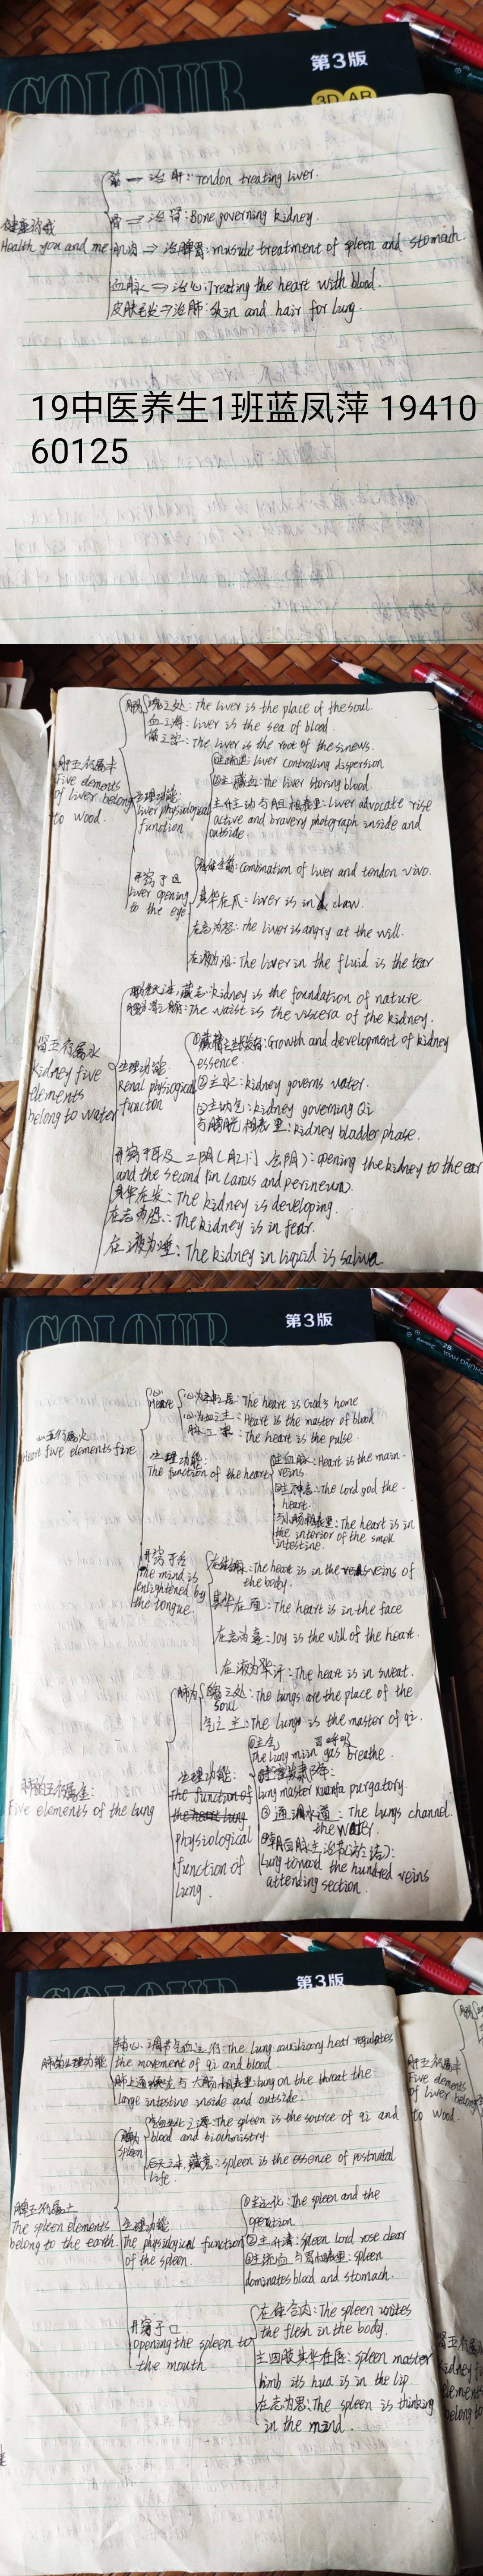 COLOUR
第3版
3D AR
筋 → 治肝: Tendon treating liver.
骨 → 治肾: Bone governing kidney.
Health you and me
肌肉 ⇒ 治脾胃: muscle treatment of spleen and stomach.
血脉 ⇒ 治心: Treating the heart with blood.
皮肤毛发 ⇒ 治肺: skin and hair for lung.
19中医养生1班蓝凤萍 19410
60125
魂之处: The liver is the place of the soul.
血之海: Liver is the sea of blood.
The liver is the root of the sinews.
肝五行属木
Five elements
of liver belong
to wood.
生理功能
liver physiological
function
liver controlling dispersion
②主藏血: the liver storing blood.
liver advocate rise
active and bravery photograph inside and
outside.
开窍于目
liver opening
to the eye
combination of liver and tendon vivo.
其华在爪: liver is in claw.
在志为怒: The liver is angry at the will.
在液为泪: The liver in the fluid is the tear
kidney is the foundation of nature
The waist is the viscera of the kidney.
肾五行属水
kidney five
elements
belong to water
生理功能
Renal physiological
function
Growth and development of kidney
essence.
②主水: kidney governs water.
③主纳气: kidney governing Qi
与膀胱相表里: kidney bladder phase.
开窍于耳及二阴(肛门、会阴): opening the kidney to the ear
and the second pin (anus and perineum).
其华在发: The kidney is developing.
在志为恐: The kidney is in fear.
在液为唾: The kidney in liquid is saliva.
COLOUR
第3版
心
Heart
The heart is God's home
Heart is the master of blood
The heart is the pulse.
心五行属火
Heart five elements fire
生理功能:
The function of the heart
①主血脉: Heart is the main
veins.
The lord god the
heart.
与小肠相表里: The heart is in
the interior of the small
intestine.
开窍于舌
The mind is
enlightened by
the tongue.
The heart is in the veins of
the body.
其华在面: The heart is in the face
在志为喜: Joy is the will of the heart.
在液为汗: The heart is in sweat.
肺为
魄之处: The lungs are the place of the
soul
气之主: The lung is the master of qi.
Five elements of the lung
生理功能:
the function of
the heart lung
physiological
function of
lung.
①主气 司呼吸
The lung main gas breathe.
lung master xuanfa purgatory.
③通调水道: The lungs channel
the water.
lung toward the hundred veins
attending section.
第3版
肺的生理功能
辅心, 调节气血运行: The lung auxiliary heart regulates
the movement of qi and blood
lung on the throat the
large intestine inside and outside.
脾为
spleen
The spleen is the source of qi and
blood and biochemistry.
spleen is the essence of postnatal
life.
脾五行属土
The spleen elements
belong to the earth.
生理功能
The physiological function
of the spleen.
①主运化: The spleen and the
operation
②主升清: spleen lord rose clear
spleen
dominates blood and stomach.
开窍于口
opening the spleen to
the mouth
在体合肉: The spleen unites
the flesh in the body.
主四肢其华在唇: spleen master
limb its hua is in the lip.
在志为思: The spleen is thinking
in the mind.
肝五行属木
Five elements
of liver belong
to wood.